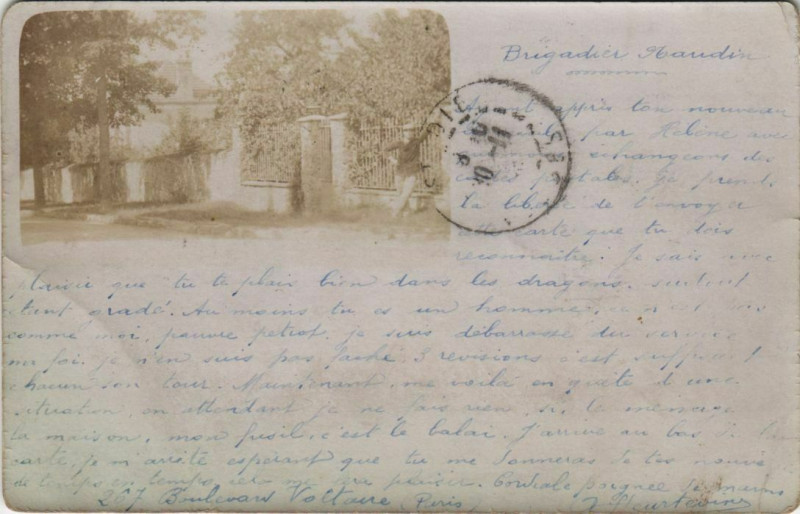 Brigadier Naudin
Ayant appris ton nouveau
par Hélène avec
échangeons des
cartes postales. Je prends
la liberté de t'envoyer
cette carte que tu dois
reconnaître. Je sais avec
plaisir que tu te plais bien dans les dragons, surtout
étant gradé. Au moins tu es un homme, ce n'est pas
comme moi, pauvre petiot, je suis débarrassé du service
ma foi je n'en suis pas faché. 3 revisions c'est suffisant
chacun son tour. Maintenant, me voilà en quête d'une
situation, en attendant je ne fais rien, si, le ménage
la maison, mon fusil, c'est le balai. J'arrive au bas de la
carte, je m'arrête espérant que tu me donneras de tes nouvelles
de temps en temps, cela me fera plaisir. Cordiale poignée de mains
267 Boulevard Voltaire (Paris)